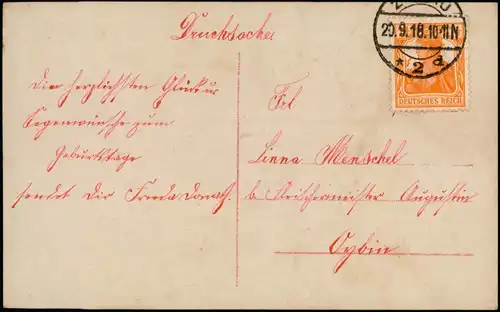 Drucksache
29.9.18.10-11N
* 2 d
DEUTSCHES REICH
Die herzlichsten Glück u.
Segenwünsche zum
Geburtstage
sendet dir Frieda Donath.
Frl
Linna Menschel
b Fleischermeister Augustin
Oybin